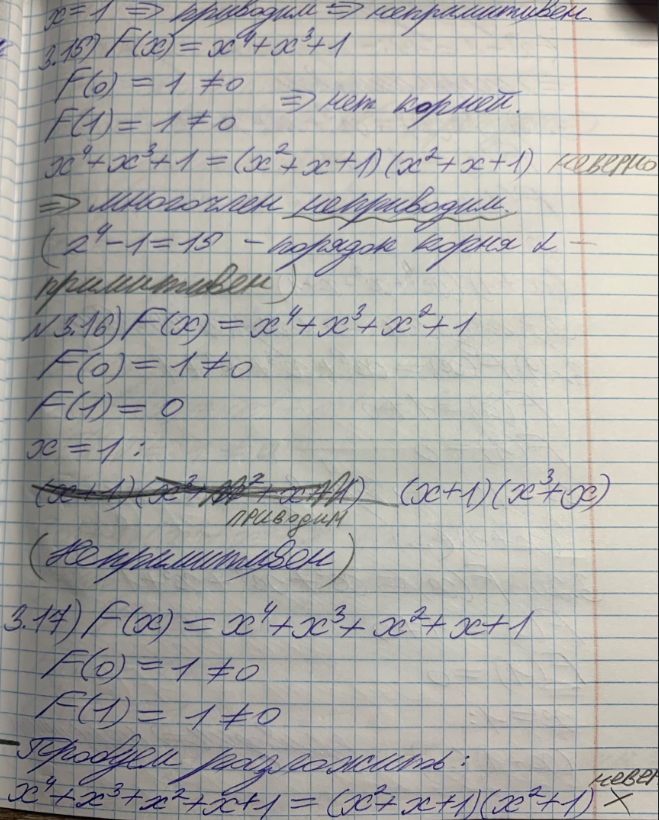 x = 1 ⇒ приводим ⇒ непримитивен.
3.15) F(x) = x⁴ + x³ + 1
F(0) = 1 ≠ 0
⇒ нет корней.
F(1) = 1 ≠ 0
x⁴ + x³ + 1 = (x² + x + 1)(x² + x + 1) неверно
⇒ многочлен неприводим.
(2⁴ - 1 = 15 - порядок корня α -
примитивен)
№3.16) F(x) = x⁴ + x³ + x² + 1
F(0) = 1 ≠ 0
F(1) = 0
x = 1 :
(x+1)(x³+x)
приводим
(Непримитивен)
3.17) F(x) = x⁴ + x³ + x² + x + 1
F(0) = 1 ≠ 0
F(1) = 1 ≠ 0
Пробуем разложить:
x⁴ + x³ + x² + x + 1 = (x² + x + 1)(x² + 1) X